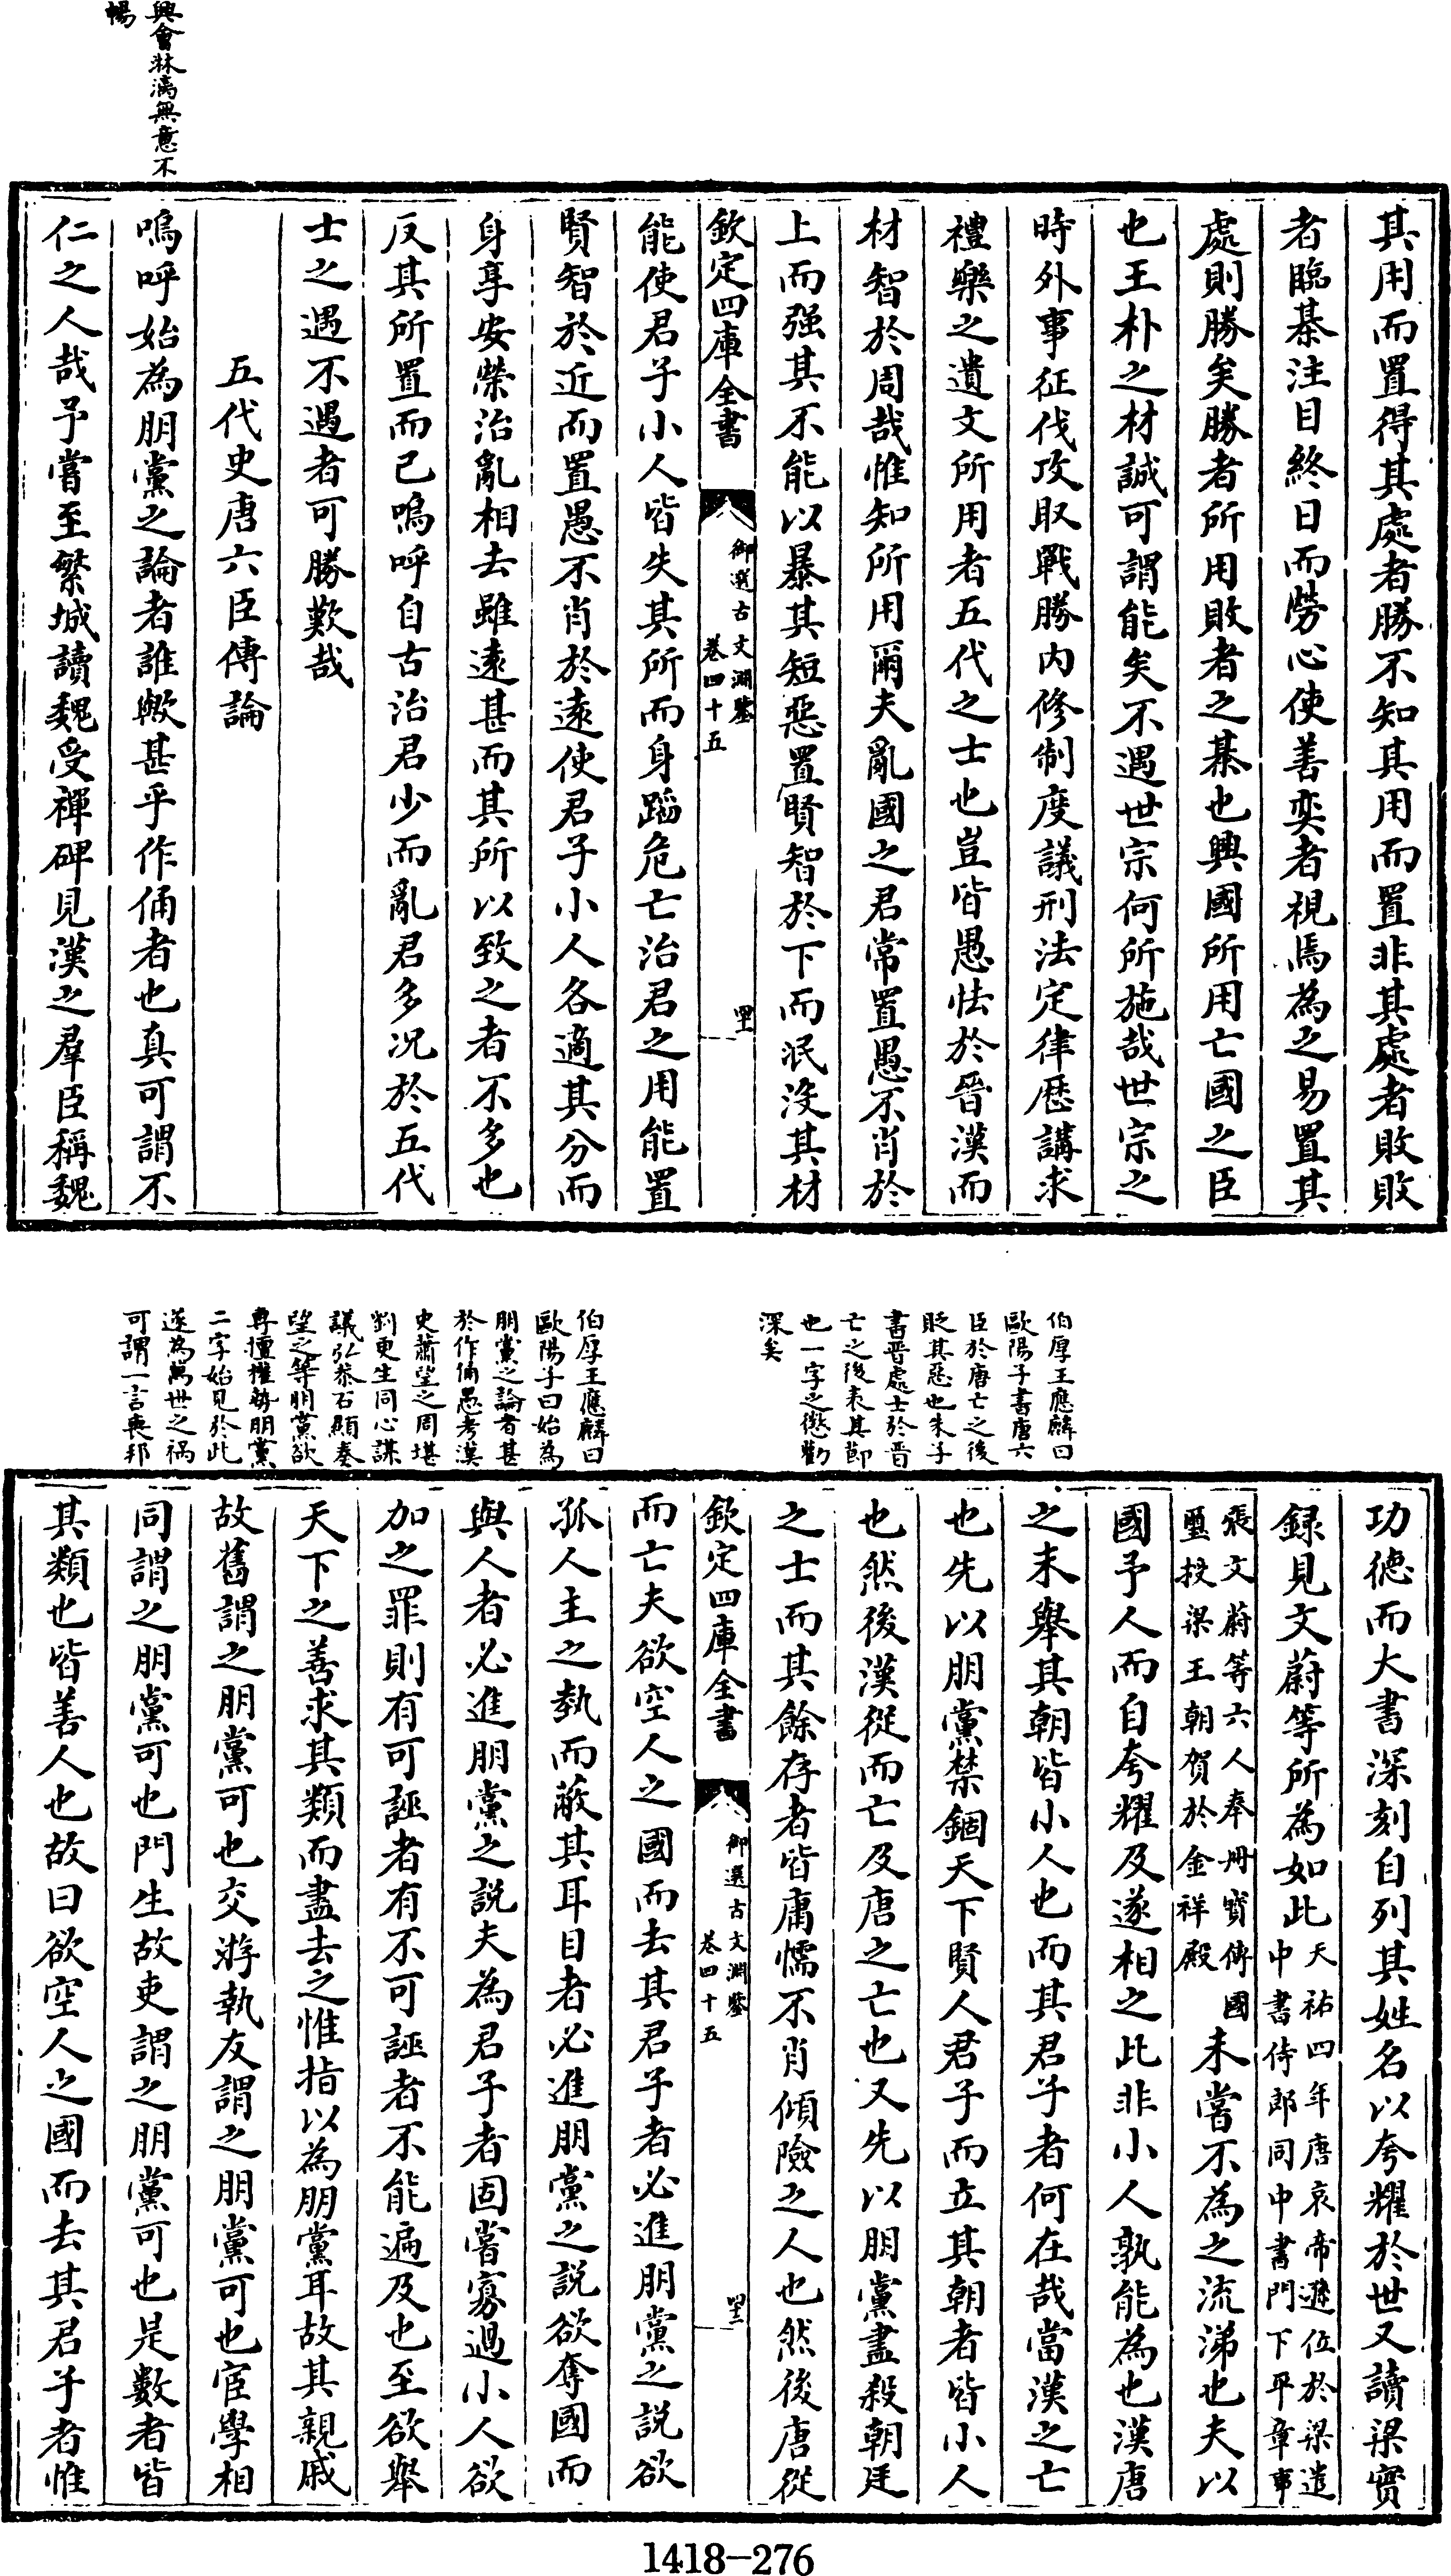 興會淋漓無意不
暢
其用而置得其處者勝不知其用而置非其處者敗敗
者臨棊注目終日而勞心使善奕者視焉為之易置其
處則勝矣勝者所用敗者之棊也興國所用亡國之臣
也王朴之材誠可謂能矣不遇世宗何所施哉世宗之
時外事征伐攻取戰勝内修制度議刑法定律歴講求
禮樂之遺文所用者五代之士也豈皆愚怯於晉漢而
材智於周哉惟知所用爾夫亂國之君常置愚不肖於
上而强其不能以暴其短惡置賢智於下而泯没其材
欽定四庫全書
御選古文淵鑒
卷四十五
能使君子小人皆失其所而身蹈危亡治君之用能置
賢智於近而置愚不肖於逺使君子小人各適其分而
身享安榮治亂相去雖逺甚而其所以致之者不多也
反其所置而已嗚呼自古治君少而亂君多况於五代
士之遇不遇者可勝歎哉
五代史唐六臣傳論
嗚呼始為朋黨之論者誰歟甚乎作俑者也真可謂不
仁之人哉予嘗至繁城讀魏受禪碑見漢之羣臣稱魏
伯厚王應麟曰
歐陽子書唐六
臣於唐亡之後
貶其惡也朱子
書晋處士於晋
亡之後表其節
也一字之懲勸
深矣
伯厚王應麟曰
歐陽子曰始為
朋黨之論者甚
於作俑愚考漢
史蕭望之周堪
劉更生同心謀
議弘恭石顯奏
望之等朋黨欲
專擅權勢朋黨
二字始見於此
遂為萬世之禍
可謂一言喪邦
功徳而大書深刻自列其姓名以夸耀於世又讀梁實
録見文蔚等所為如此天祐四年唐哀帝遜位於梁遣
中書侍郎同中書門下平章事
張文蔚等六人奉册寳傳國
璽投梁王朝賀於金祥殿
未嘗不為之流涕也夫以
國予人而自夸耀及遂相之此非小人孰能為也漢唐
之末舉其朝皆小人也而其君子者何在哉當漢之亡
也先以朋黨禁錮天下賢人君子而立其朝者皆小人
也然後漢從而亡及唐之亡也又先以朋黨盡殺朝廷
之士而其餘存者皆庸懦不肖傾險之人也然後唐從
欽定四庫全書
御選古文淵鑒
卷四十五
而亡夫欲空人之國而去其君子者必進朋黨之説欲
孤人主之埶而蔽其耳目者必進朋黨之説欲奪國而
與人者必進朋黨之説夫為君子者固嘗寡過小人欲
加之罪則有可誣者有不可誣者不能遍及也至欲舉
天下之善求其類而盡去之惟指以為朋黨耳故其親戚
故舊謂之朋黨可也交游執友謂之朋黨可也宦學相
同謂之朋黨可也門生故吏謂之朋黨可也是數者皆
其類也皆善人也故曰欲空人之國而去其君子者惟
1418-276